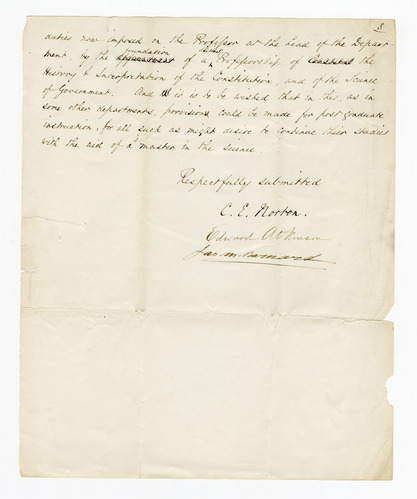 8
duties now imposed on the Professor at the head of the Depart-
ment, by the foundation of a Professorship of the
History & Interpretation of the Constitution, and of the Science
of Government. And it is to be wished that in this, as in
some other departments, provisions could be made for post graduate
instruction, for all such as might desire to continue their studies
with the aid of a master in the science.
Respectfully submitted
C. E. Norton.
Edward Atkinson
Jas. M. Barnard